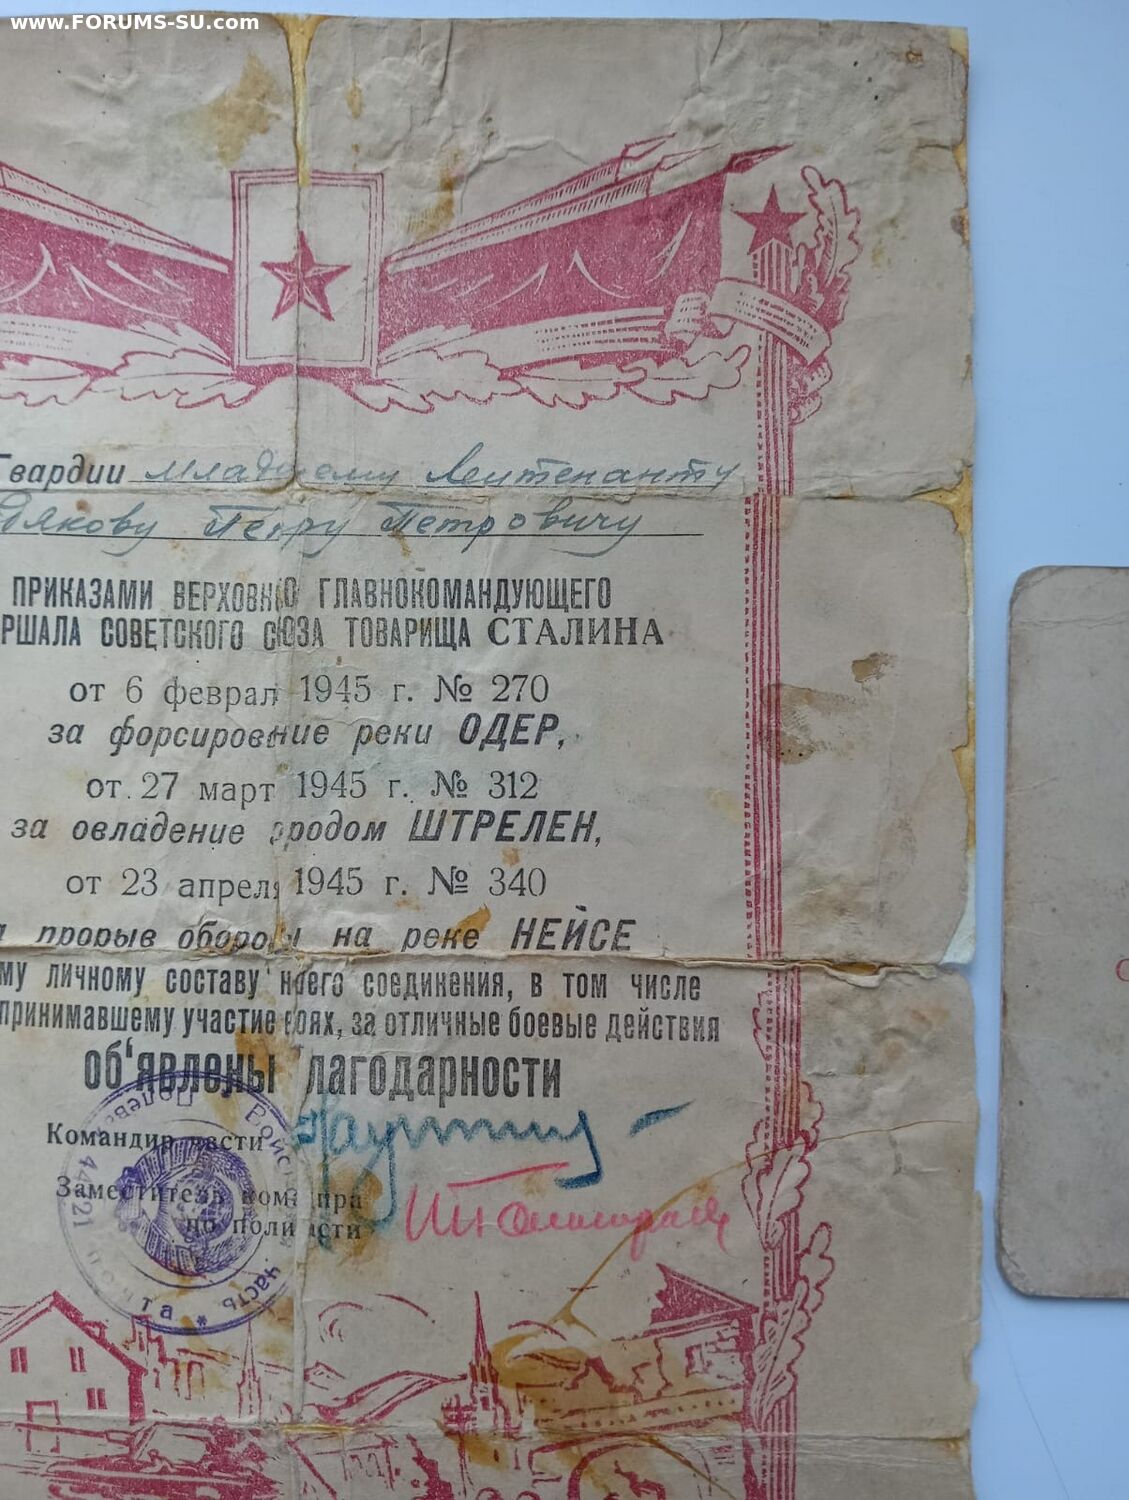 www.FORUMS-SU.com
Гвардии младшему Лейтенанту
Петру Петровичу
ПРИКАЗАМИ ГЛАВНОКОМАНДУЮЩЕГО
РШАЛА СОВЕТСКОГО ТОВАРИЩА СТАЛИНА
от 6 феврал 1945 г. № 270
за реки ОДЕР,
от 27 март 1945 г. № 312
за овладение родом ШТРЕЛЕН,
от 23 апрел 1945 г. № 340
прорыв на реке НЕЙСЕ
му личному составу соединения, в том числе
принимавшему участие за отличные боевые действия
об'явлены лагодарности
Командир части
Заместитель
по
Войск
часть
44421
почта *